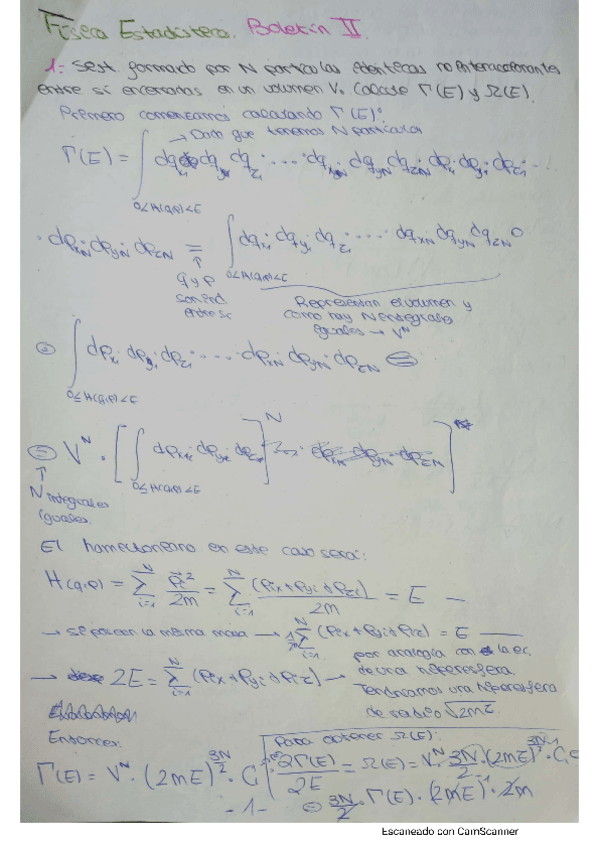 Física Estadística. Boletín II.
1.- Sist formado por N partículas idénticas no interaccionantes
entre sí encerradas en un volumen V. Calcule Γ(E) y Ω(E).
Primero comenzamos calculando Γ(E):
→ Dado que tenemos N partículas
Γ(E) = ∫ dq dq dq_z₁ ..... dq_xN dq_yN dq_zN dp_x₁ dp_y₁ dp_z₁ ...
0≤H(q,p)≤E
· dp_xN dp_yN dp_zN = ∫ dq_x₁ dq_y₁ dq_z₁ ..... dq_xN dq_yN dq_zN
0≤H(q,p)≤E
↑
q y p
son ind
entre sí
Representan el volumen y
como hay N integrales
iguales → V^N
∫ dp_x₁ dp_y₁ dp_z₁ ..... dp_xN dp_yN dp_zN =
0≤H(q,p)≤E
= V^N · [∫ dp_xi dp_yi dp_zi]^N
0≤H(q,p)≤E
↑
N integrales
iguales.
El hamiltoniano en este caso será:
H(q,p) = Σ_{i=1}^{N} p_i²/2m = Σ_{i=1}^{N} (p_ix + p_yi + p_zi)/2m = E —
→ se poseen la misma masa → 1/2m Σ_{i=1}^{N} (p_ix + p_yi + p_iz) = E —
por analogía con la ec.
de una hiperesfera.
→ 2E = Σ_{i=1}^{N} (p_ix + p_yi + p_iz) →
Tendríamos una hiperesfera
de radio √2mE
Entonces:
Γ(E) = V^N · (2mE)^{3N/2} · C
Para obtener Ω(E):
∂Γ(E)/∂E = Ω(E) = V^N · 3N/2 · (2mE)^{3N/2 - 1} · C
= 3N/2 · Γ(E) · (2mE)^{-1} · 2m
-1-
Escaneado con CamScanner